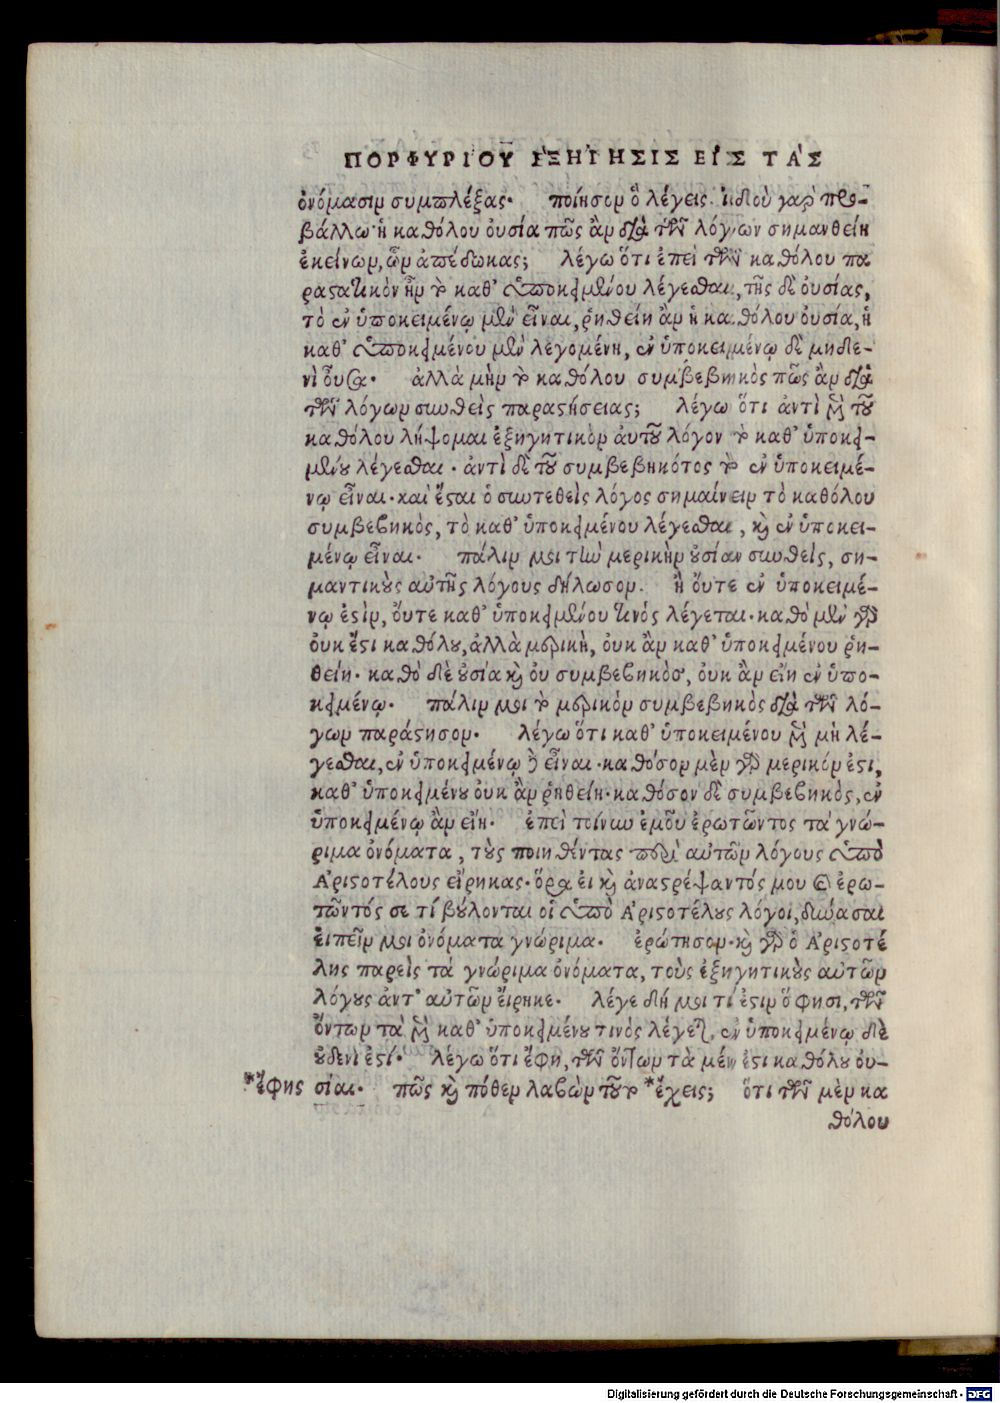 ΠΟΡΦΥΡΙΟΥ ΕΞΗΓΗΣΙΣ ΕΙΣ ΤΑΣ
ὀνόμασιν συμπλέξας· ποίησον ὃ λέγεις. ἰδοὺ γαρ προ-
βάλλω· ἡ καθόλου οὐσία πῶς ἂν διὰ τῶν λόγων σημανθείη
ἐκείνων, ὧν ἀπέδωκας; λέγω ὅτι ἐπεὶ τῶν καθόλου πα
ραστατικὸν ἦν τὸ καθ' ὑποκειμένου λέγεσθαι, τῆς δὲ οὐσίας,
τὸ ἐν ὑποκειμένῳ μὲν εἶναι, ῥηθείη ἂν ἡ καθόλου οὐσία, ἡ
καθ' ὑποκειμένου μὲν λεγομένη, ἐν ὑποκειμένῳ δὲ μηδε-
νὶ οὖσα· ἀλλὰ μὴν τὸ καθόλου συμβεβηκὸς πῶς ἂν διὰ
τῶν λόγων συνθεὶς παραστήσειας; λέγω ὅτι ἀντὶ μὲν τοῦ
καθόλου λήψομαι ἐξηγητικὸν ἀυτοῦ λόγον τὸ καθ' ὑποκει-
μένου λέγεσθαι· ἀντὶ δὲ τοῦ συμβεβηκότος τὸ ἐν ὑποκειμέ-
νῳ εἶναι· καὶ ἔσται ὁ συντεθεὶς λόγος σημαίνειν τὸ καθόλου
συμβεβηκὸς, τὸ καθ' ὑποκειμένου λέγεσθαι, καὶ ἐν ὑποκει-
μένῳ εἶναι· πάλιν μοι τὴν μερικὴν οὐσίαν συνθεὶς, ση-
μαντικοὺς αὐτῆς λόγους δήλωσον. ἢ ὄυτε ἐν ὑποκειμέ-
νῳ ἐστὶν, ὄυτε καθ' ὑποκειμένου τινὸς λέγεται· καθὸ μὲν γὰρ
ὀυκ ἔστι καθόλου, ἀλλὰ μερικὴ, ὀυκ ἂν καθ' ὑποκειμένου ῥη-
θείη· καθὸ δὲ οὐσία καὶ ὀυ συμβεβηκὸς, ὀυκ ἂν εἴη ἐν ὑπο-
κειμένῳ· πάλιν μοι τὸ μερικὸν συμβεβηκὸς διὰ τῶν λό-
γων παράστησον· λέγω ὅτι καθ' ὑποκειμένου μὲν μὴ λέ-
γεσθαι, ἐν ὑποκειμένῳ δὲ εἶναι· καθόσον μὲν γὰρ μερικόν ἐστι,
καθ' ὑποκειμένου ὀυκ ἂν ῥηθείη· καθόσον δὲ συμβεβηκὸς, ἐν
ὑποκειμένῳ ἂν εἴη· ἐπεὶ τοίνυν ἐμοῦ ἐρωτῶντος τὰ γνώ-
ριμα ὀνόματα, τοὺς ποιηθέντας περὶ αὐτῶν λόγους ὑπὸ
Ἀριστοτέλους εἴρηκας· ὅρα εἰ καὶ ἀναστρέψαντός μου καὶ ἐρω-
τῶντός σε τί βούλονται οἱ ὑπὸ Ἀριστοτέλους λόγοι, δύνασαι
ἐιπεῖν μοι ὀνόματα γνώριμα· ἐρώτησον· καὶ γὰρ ὁ Ἀριστοτέ
λης παρεὶς τὰ γνώριμα ὀνόματα, τοὺς ἐξηγητικοὺς αὐτῶν
λόγους ἀντ' αὐτῶν ἔιρηκε· λέγε δή μοι τί ἐστιν ὅ φησι, τῶν
ὄντων τὰ μὲν καθ' ὑποκειμένου τινὸς λέγεται, ἐν ὑποκειμένῳ δὲ
οὐδενί ἐστί· λέγω ὅτι ἔφη, τῶν ὄντων τὰ μέν ἐστι καθόλου οὐ-
*ἔφης σίαι· πῶς καὶ πόθεν λαβὼν τοῦτο *ἔχεις; ὅτι τῶν μὲν κα
θόλου
Digitalisierung gefördert durch die Deutsche Forschungsgemeinschaft - DFG